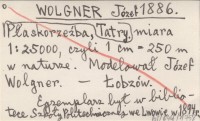 WOLGNER Józef 1886.
Płaskorzeźba, Tatry, miara
1:25000, czyli 1 cm = 250 m
w naturze. Modelował Józef
Wolgner. — Łobzów.
Egzemplarz był w biblio
tece Szkoły Politechnicznej we Lwowie w
1894